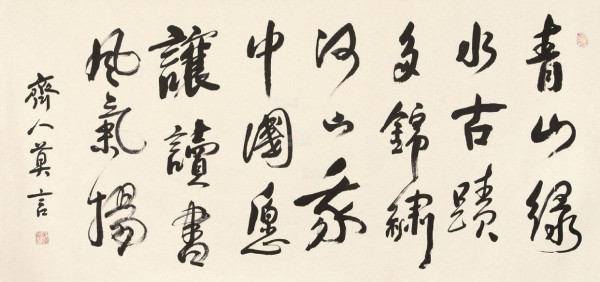 青山绿
水古蹟
多錦繡
河山我
中國愿
讓讀書
風氣揚
齊人莫言